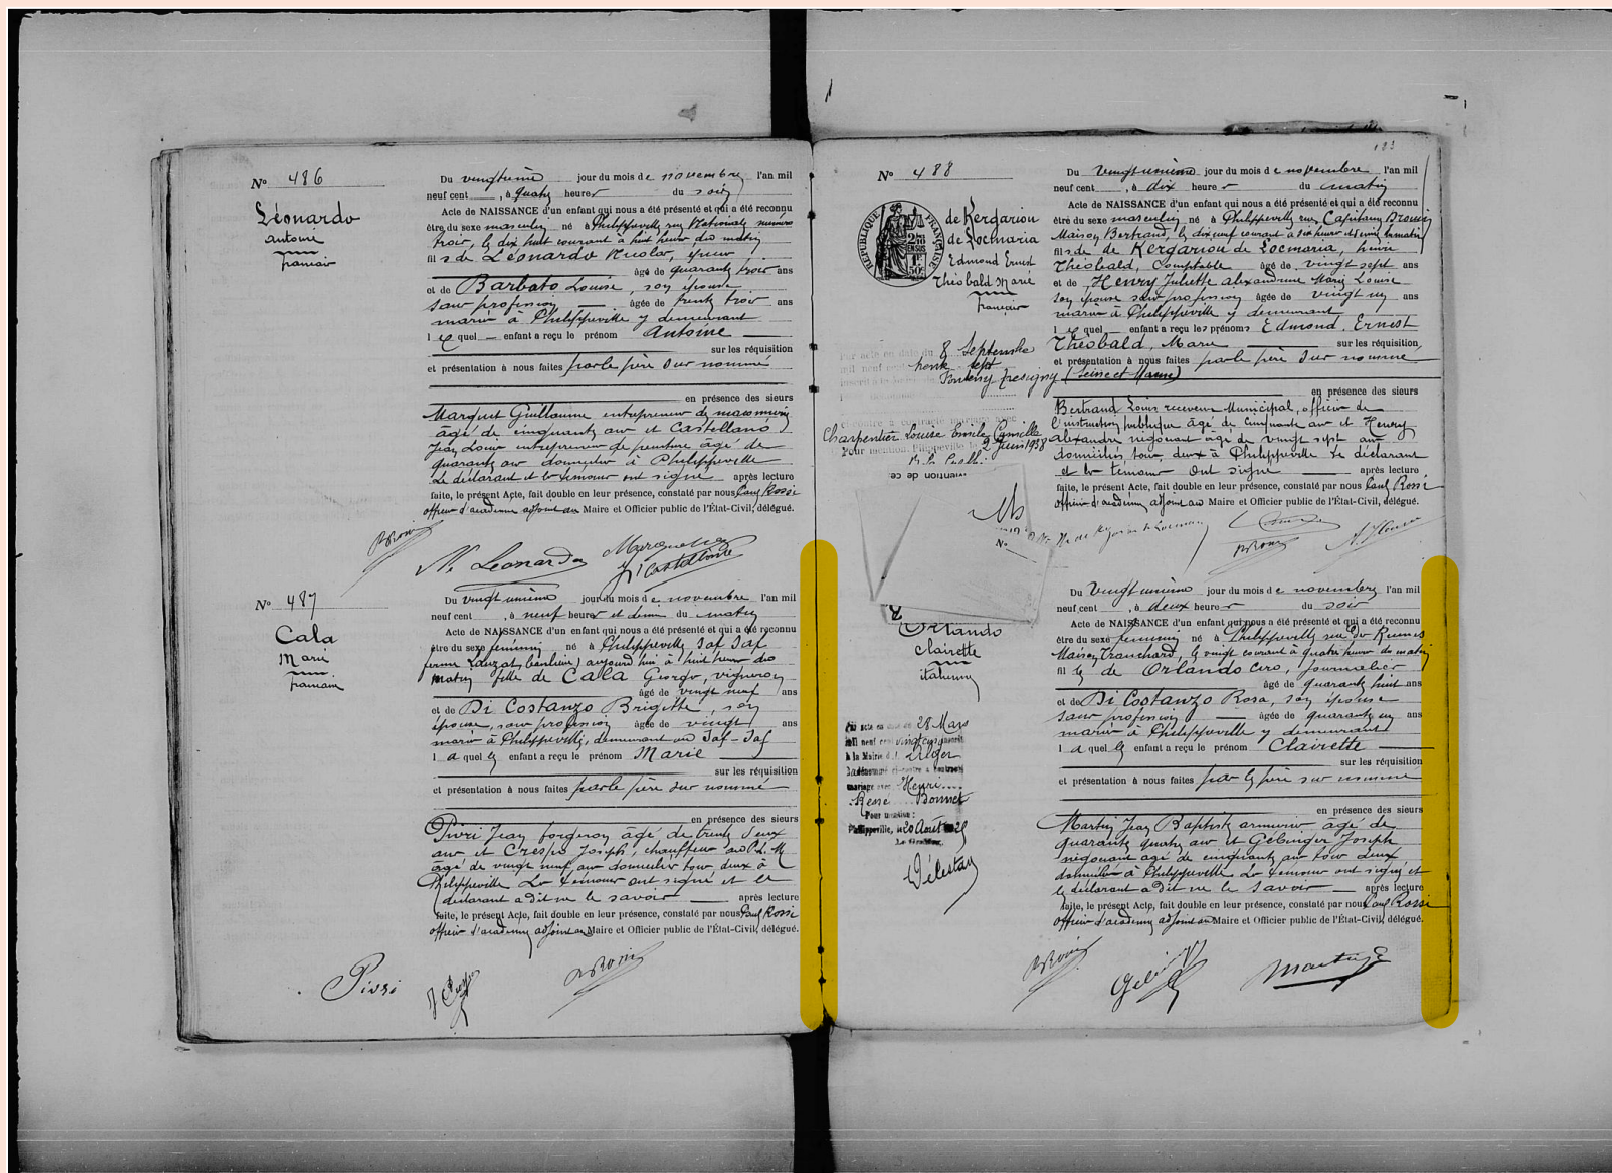 N° 486
Léonardo
Antoine
français
Du vingtunième jour du mois de novembre l'an mil
neuf cent , à quatre heures du soir
Acte de NAISSANCE d'un enfant qui nous a été présenté et qui a été reconnu
être du sexe masculin né à Philippeville rue Nationale numéro
trois, le dix huit courant à huit heures du matin
fils de Léonardo Nicolas,
âgé de quarante trois ans
et de Barbato Louise, son épouse
sans profession âgée de trente trois ans
mariés à Philippeville y demeurant
lequel enfant a reçu le prénom Antoine
sur les réquisition
et présentation à nous faites par le père sus nommé
en présence des sieurs
Marquet Guillaume entrepreneur de maçonnerie
âgé de cinquante ans et Castellano
Jean Louis entrepreneur de peinture âgé de
quarante ans domiciliés à Philippeville
Le déclarant et les témoins ont signé après lecture
faite, le présent Acte, fait double en leur présence, constaté par nous Paul Rossi
officier d'académie adjoint au Maire et Officier public de l'État-Civil, délégué.
N. Leonardo
N° 487
Cala
Marie
française
Du vingt unième jour du mois de novembre l'an mil
neuf cent , à neuf heures et demie du matin
Acte de NAISSANCE d'un enfant qui nous a été présenté et qui a été reconnu
être du sexe féminin né à Philippeville Saf Saf
ferme Lauzat (banlieue) aujourd'hui à huit heures du
matin fille de Cala Giorgio, vigneron
âgé de vingt neuf ans
et de Di Costanzo Brigitte, son
épouse, sans profession âgée de vingt ans
mariés à Philippeville, demeurant au Saf-Saf
laquelle enfant a reçu le prénom Marie
sur les réquisition
et présentation à nous faites par le père sus nommé
en présence des sieurs
Pivri Jean forgeron âgé de trente deux
ans et Crespo Joseph, chauffeur au P.L.M
âgé de vingt neuf ans domiciliés tous deux à
Philippeville Les témoins ont signé et le
déclarant a dit ne le savoir après lecture
faite, le présent Acte, fait double en leur présence, constaté par nous Paul Rossi
officier d'académie adjoint au Maire et Officier public de l'État-Civil, délégué.
Pivri
N° 488
RÉPUBLIQUE FRANÇAISE
de Kergariou
de Locmaria
Edmond Ernest
Théobald Marie
français
8 Septembre
trente sept
Fontenay Tresigny (Seine et Marne)
Charpentier Louise Emile Camille
Pour mention, Philippeville le 2 Juin 1938
Du Vingtunième jour du mois de novembre l'an mil
neuf cent , à dix heures du matin
Acte de NAISSANCE d'un enfant qui nous a été présenté et qui a été reconnu
être du sexe masculin né à Philippeville rue Capitaine Drouin
Maison Bertrand, le dix neuf courant à six heures et demie du matin
fils de de Kergariou de Locmaria, henri
Théobald, Comptable âgé de vingt sept ans
et de Henry Juliette Alexandrine Marie Louise
son épouse sans profession âgée de vingt un ans
mariés à Philippeville y demeurant
lequel enfant a reçu les prénoms Edmond, Ernest
Théobald, Marie sur les réquisition
et présentation à nous faites par le père sus nommé
en présence des sieurs
Bertrand Louis receveur Municipal, officier de
l'instruction publique âgé de cinquante ans et Henry
Alexandre négociant âgé de vingt sept ans
domiciliés tous deux à Philippeville Le déclarant
et les témoins ont signé après lecture
faite, le présent Acte, fait double en leur présence, constaté par nous Paul Rossi
officier d'académie adjoint au Maire et Officier public de l'État-Civil, délégué.
N°
Orlando
Clairette
italienne
28 Mars
mil neuf cent vingt cinq
à la Mairie d'Alger
mariage avec Henri
René Bonnet
Pour mention :
Philippeville, le 20 Août
Du Vingtunième jour du mois de novembre l'an mil
neuf cent , à deux heures du soir
Acte de NAISSANCE d'un enfant qui nous a été présenté et qui a été reconnu
être du sexe féminin né à Philippeville rue du Ruines
Maison Tranchard, le vingt courant à quatre heures du matin
fille de Orlando Ciro, journalier
âgé de quarante huit ans
et de Di Costanzo Rosa, son épouse
sans profession âgée de quarante un ans
mariés à Philippeville y demeurant
laquelle enfant a reçu le prénom Clairette
sur les réquisition
et présentation à nous faites par le père sus nommé
en présence des sieurs
Martin Jean Baptiste armurier âgé de
quarante quatre ans et Gébinger Joseph
négociant âgé de cinquante ans tous deux
domiciliés à Philippeville Les témoins ont signé et
le déclarant a dit ne le savoir après lecture
faite, le présent Acte, fait double en leur présence, constaté par nous Paul Rossi
officier d'académie adjoint au Maire et Officier public de l'État-Civil, délégué.
Martin